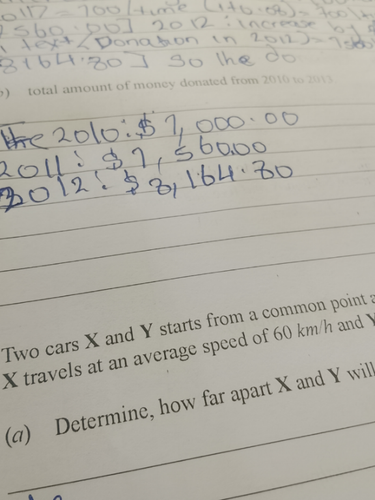 2011? = 700 [time (1+0.08) = 700
560.00] 2012: increase by $
text [Donation in 2012) = 7560
8164.80] so the do
b) total amount of money donated from 2010 to 2013.
the 2010: $ 7,000.00
2011: $ 7,560.00
2012: $ 8,164.80
Two cars X and Y starts from a common point a
X travels at an average speed of 60 km/h and Y
(a) Determine, how far apart X and Y will